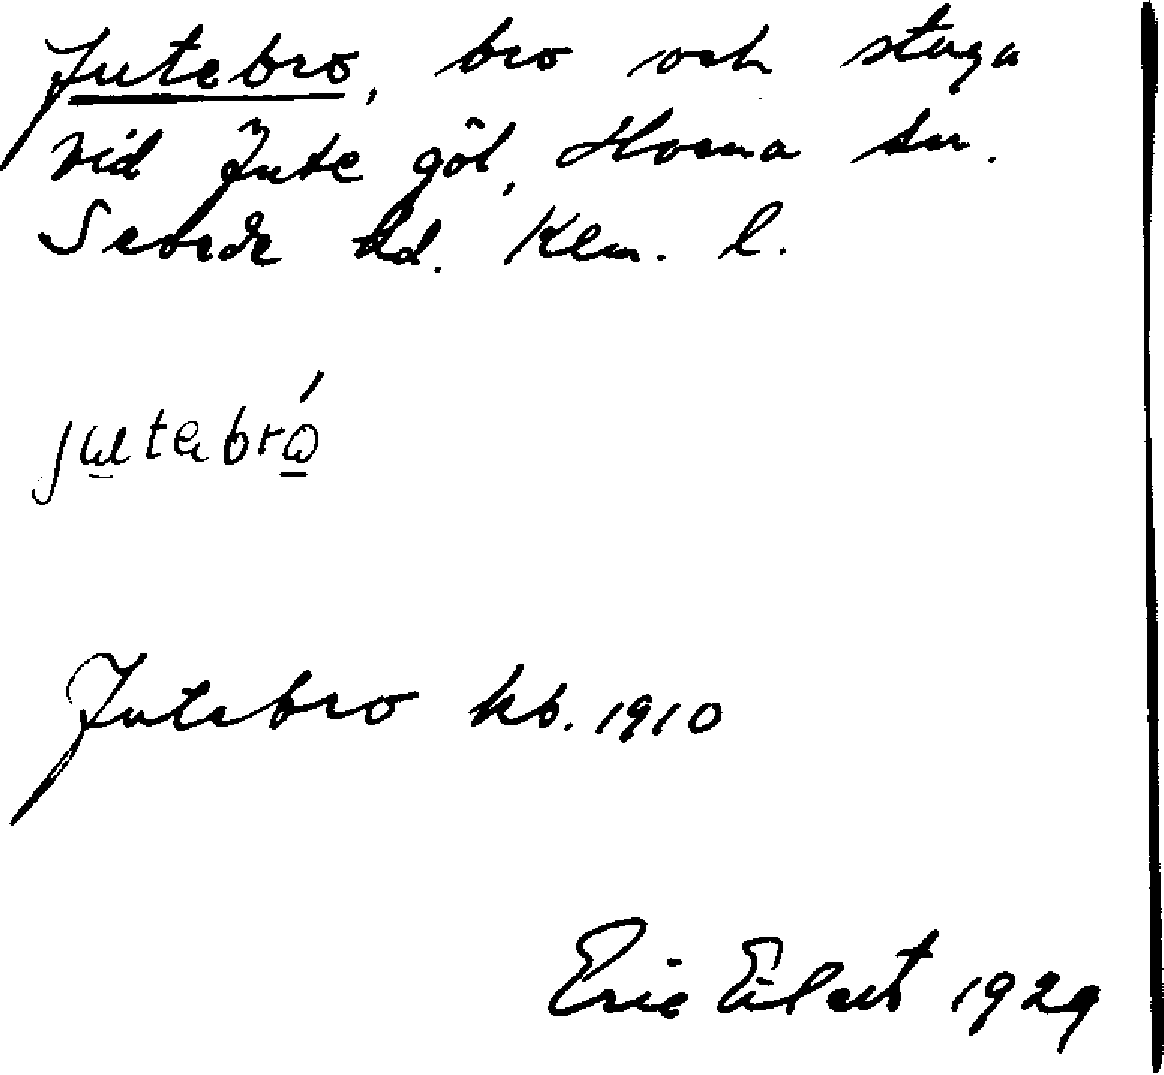 Jutebro, bro och stuga
vid Jute göl, Horna sn.
Sevede hd. Klm. l.
jutebro
Jutebro kb. 1910
Eric Eilert 1929